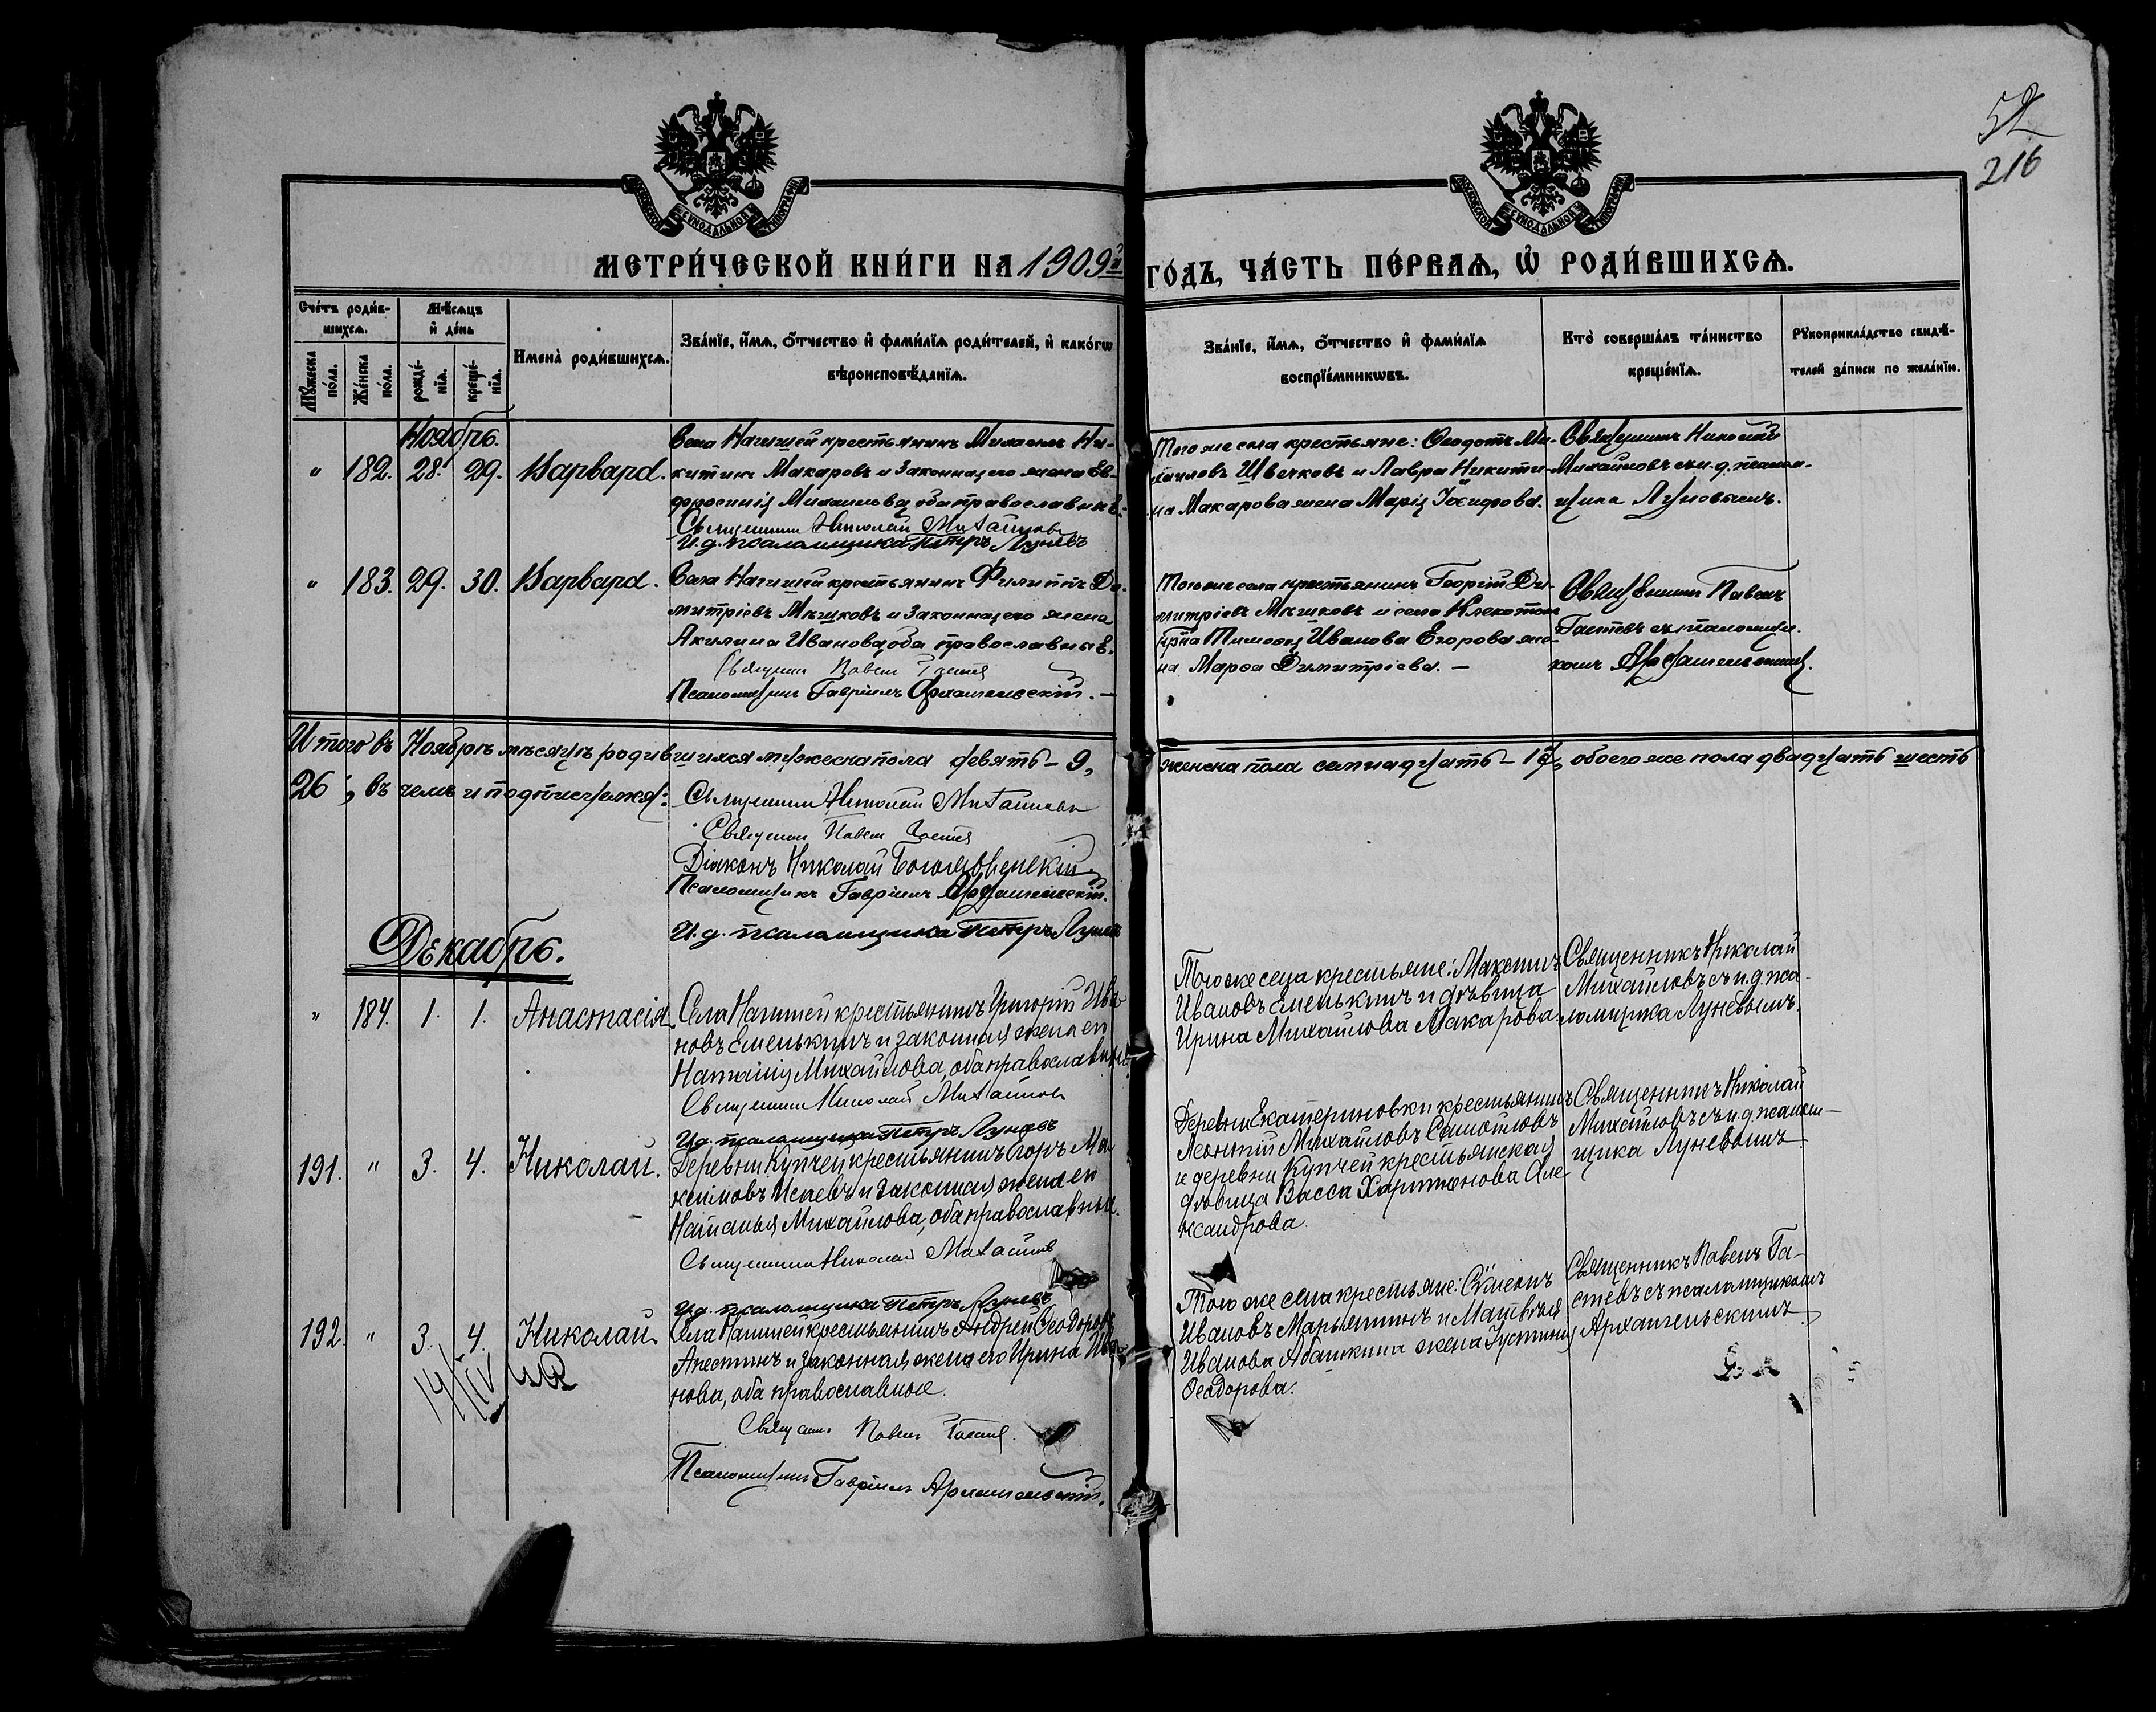 52
216
МОСКОВСКОЙ СѴНОДАЛЬНОЙ ТИПОГРАФІИ
МОСКОВСКОЙ СѴНОДАЛЬНОЙ ТИПОГРАФІИ
МЕТРИ́ЧЕСКОЙ КНИ́ГИ НА 1909й ГО́ДЪ, ЧА́СТЬ ПЕ́РВАѦ, Ѡ҆ РОДИ́ВШИХСѦ.
Сче́тъ роди́в-
шихсѧ.
Мꙋ́жеска по́ла.
Же́нска по́ла.
Мѣ́сѧцъ
и҆ де́нь
рожде́-
нїѧ.
креще́-
нїѧ.
Имена̀ роди́вшихсѧ.
Зва́нїе, и҆́мѧ, ѻ҆́тчество и҆ фами́лїѧ роди́телей, и҆ како́гѡ
вѣроисповѣ́данїѧ.
Зва́нїе, и҆́мѧ, ѻ҆́тчество и҆ фами́лїѧ
воспрїе́мникѡвъ.
Кто̀ соверша́лъ та́инство
креще́нїѧ.
Рꙋкоприкла́дство свидѣ́-
телей за́писи по жела́нїю.
Ноябрь.
" 182. 28. 29. Варвара.
Села Нагишей крестьянинъ Михаилъ Ни-
китинъ Макаровъ и законная его жена Ев-
фросинія Михаилова, оба православные.
Священникъ Николай Михайловъ
И. д. псаломщика Петръ Луневъ
Того же села крестьяне: Феодотъ Ми-
хаиловъ Цвечковъ и Лавра Никити-
на Макарова жена Марія Іосифова.
Священникъ Николай
Михайловъ съ и. д. псалом-
щика Луневымъ.
" 183. 29. 30. Варвара.
Села Нагишей крестьянинъ Филиппъ Ди-
митріевъ Мѣшковъ и законная его жена
Акилина Иванова, оба православные.
Священникъ Павелъ Гостевъ
Псаломщикъ Гавріилъ Архангельскій. —
Того же села крестьянинъ Георгій Ди-
митріевъ Мѣшковъ и села Клекотки
Тимофея Иванова Егорова же-
на Марфа Димитріева. —
Священникъ Павелъ
Гостевъ съ псаломщи-
комъ Архангельскимъ.
Итого въ Ноябрѣ мѣсяцѣ родившихся мужеска пола девять – 9, женска пола семнадцать – 17, обоего же пола двадцать шесть
26; въ чемъ и подписуемся:
Священникъ Николай Михайловъ
Священникъ Павелъ Гостевъ
Діаконъ Николай Богоявленскій
Псаломщикъ Гавріилъ Архангельскій.
И. д. псаломщика Петръ Луневъ
Декабрь.
" 184. 1. 1. Анастасія.
Села Нагишей крестьянинъ Григорій Ива-
новъ Емелькинъ и законная жена его
Наталія Михайлова, оба православные.
Священникъ Николай Михайловъ
И. д. псаломщика Петръ Луневъ
Того же села крестьяне: Максимъ
Ивановъ Емелькинъ и дѣвица
Ирина Михайлова Макарова.
Священникъ Николай
Михайловъ съ и. д. пса-
ломщика Луневымъ.
191. " 3. 4. Николай.
Деревни Купчей крестьянинъ Егоръ Ма-
ксимовъ Исаевъ и законная жена его
Наталья Михайлова, оба православные.
Священникъ Николай Михайловъ
И. д. псаломщика Петръ Луневъ
Деревни Екатериновки крестьянинъ
Леонтій Михайловъ Самойловъ
и деревни Купчей крестьянская
дѣвица Васса Харитонова Але-
ксандрова.
Священникъ Николай
Михайловъ съ и. д. псалом-
щика Луневымъ
192. " 3. 4. Николай
Села Нагишей крестьянинъ Андрей Феодоровъ
Апестинъ и законная жена его Ирина Ива-
нова, оба православные.
Священникъ Павелъ Гостевъ.
Псаломщикъ Гавріилъ Архангельскій.
Того же села крестьяне: Сѵмеонъ
Ивановъ Марынтинъ и Матвѣя
Иванова Абашкина жена Іустинія
Феодорова.
Священникъ Павелъ Го-
стевъ съ псаломщикомъ
Архангельскимъ
14/IV